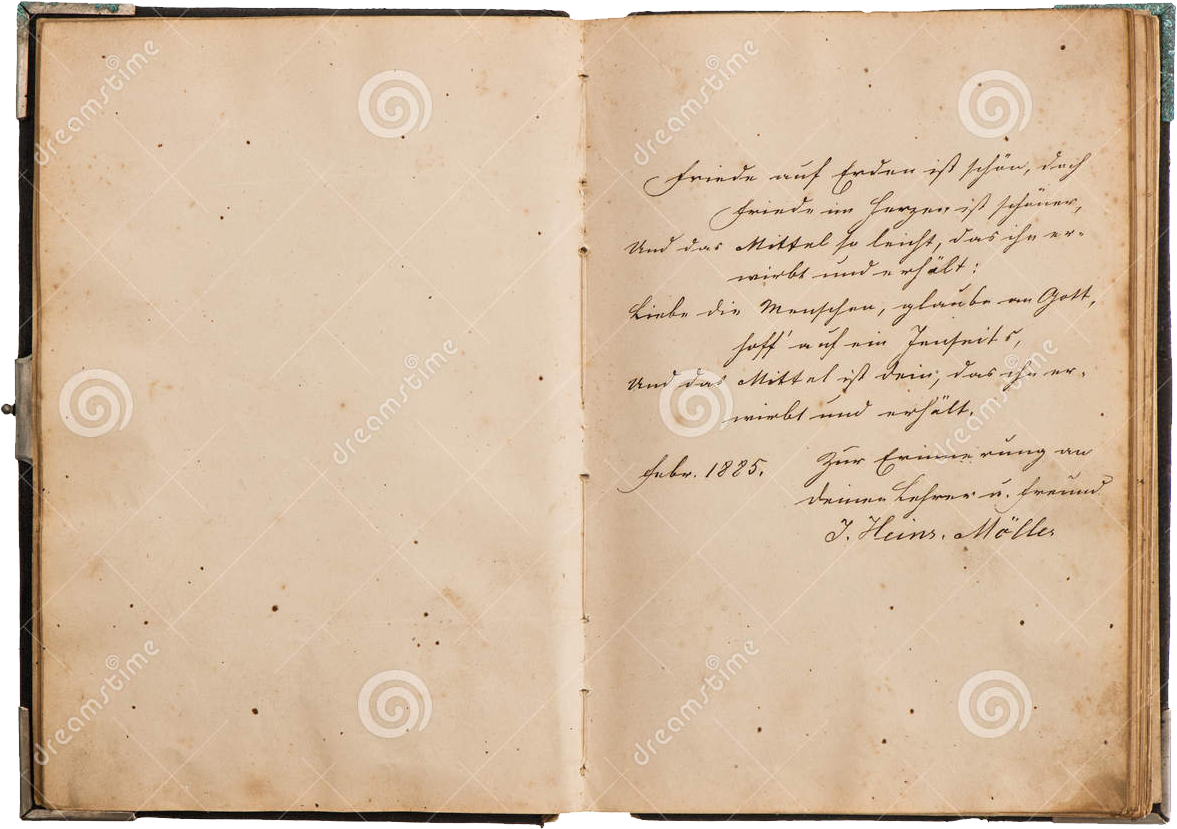 Friede auf Erden ist schön, doch
Friede im Herzen ist schöner,
Und das Mittel so leicht, das ihn er-
wirbt und erhält:
Liebe die Menschen, glaube an Gott,
hoff' auf ein Jenseits,
Und das Mittel ist dein, das ihn er-
wirbt und erhält.
Febr. 1885. Zur Erinnerung an
deinen Lehrer u. Freund
J. Heinr. Möller
dreamstime
dreamstime
dreamstime
dreamstime
dreamstime
dreamstime